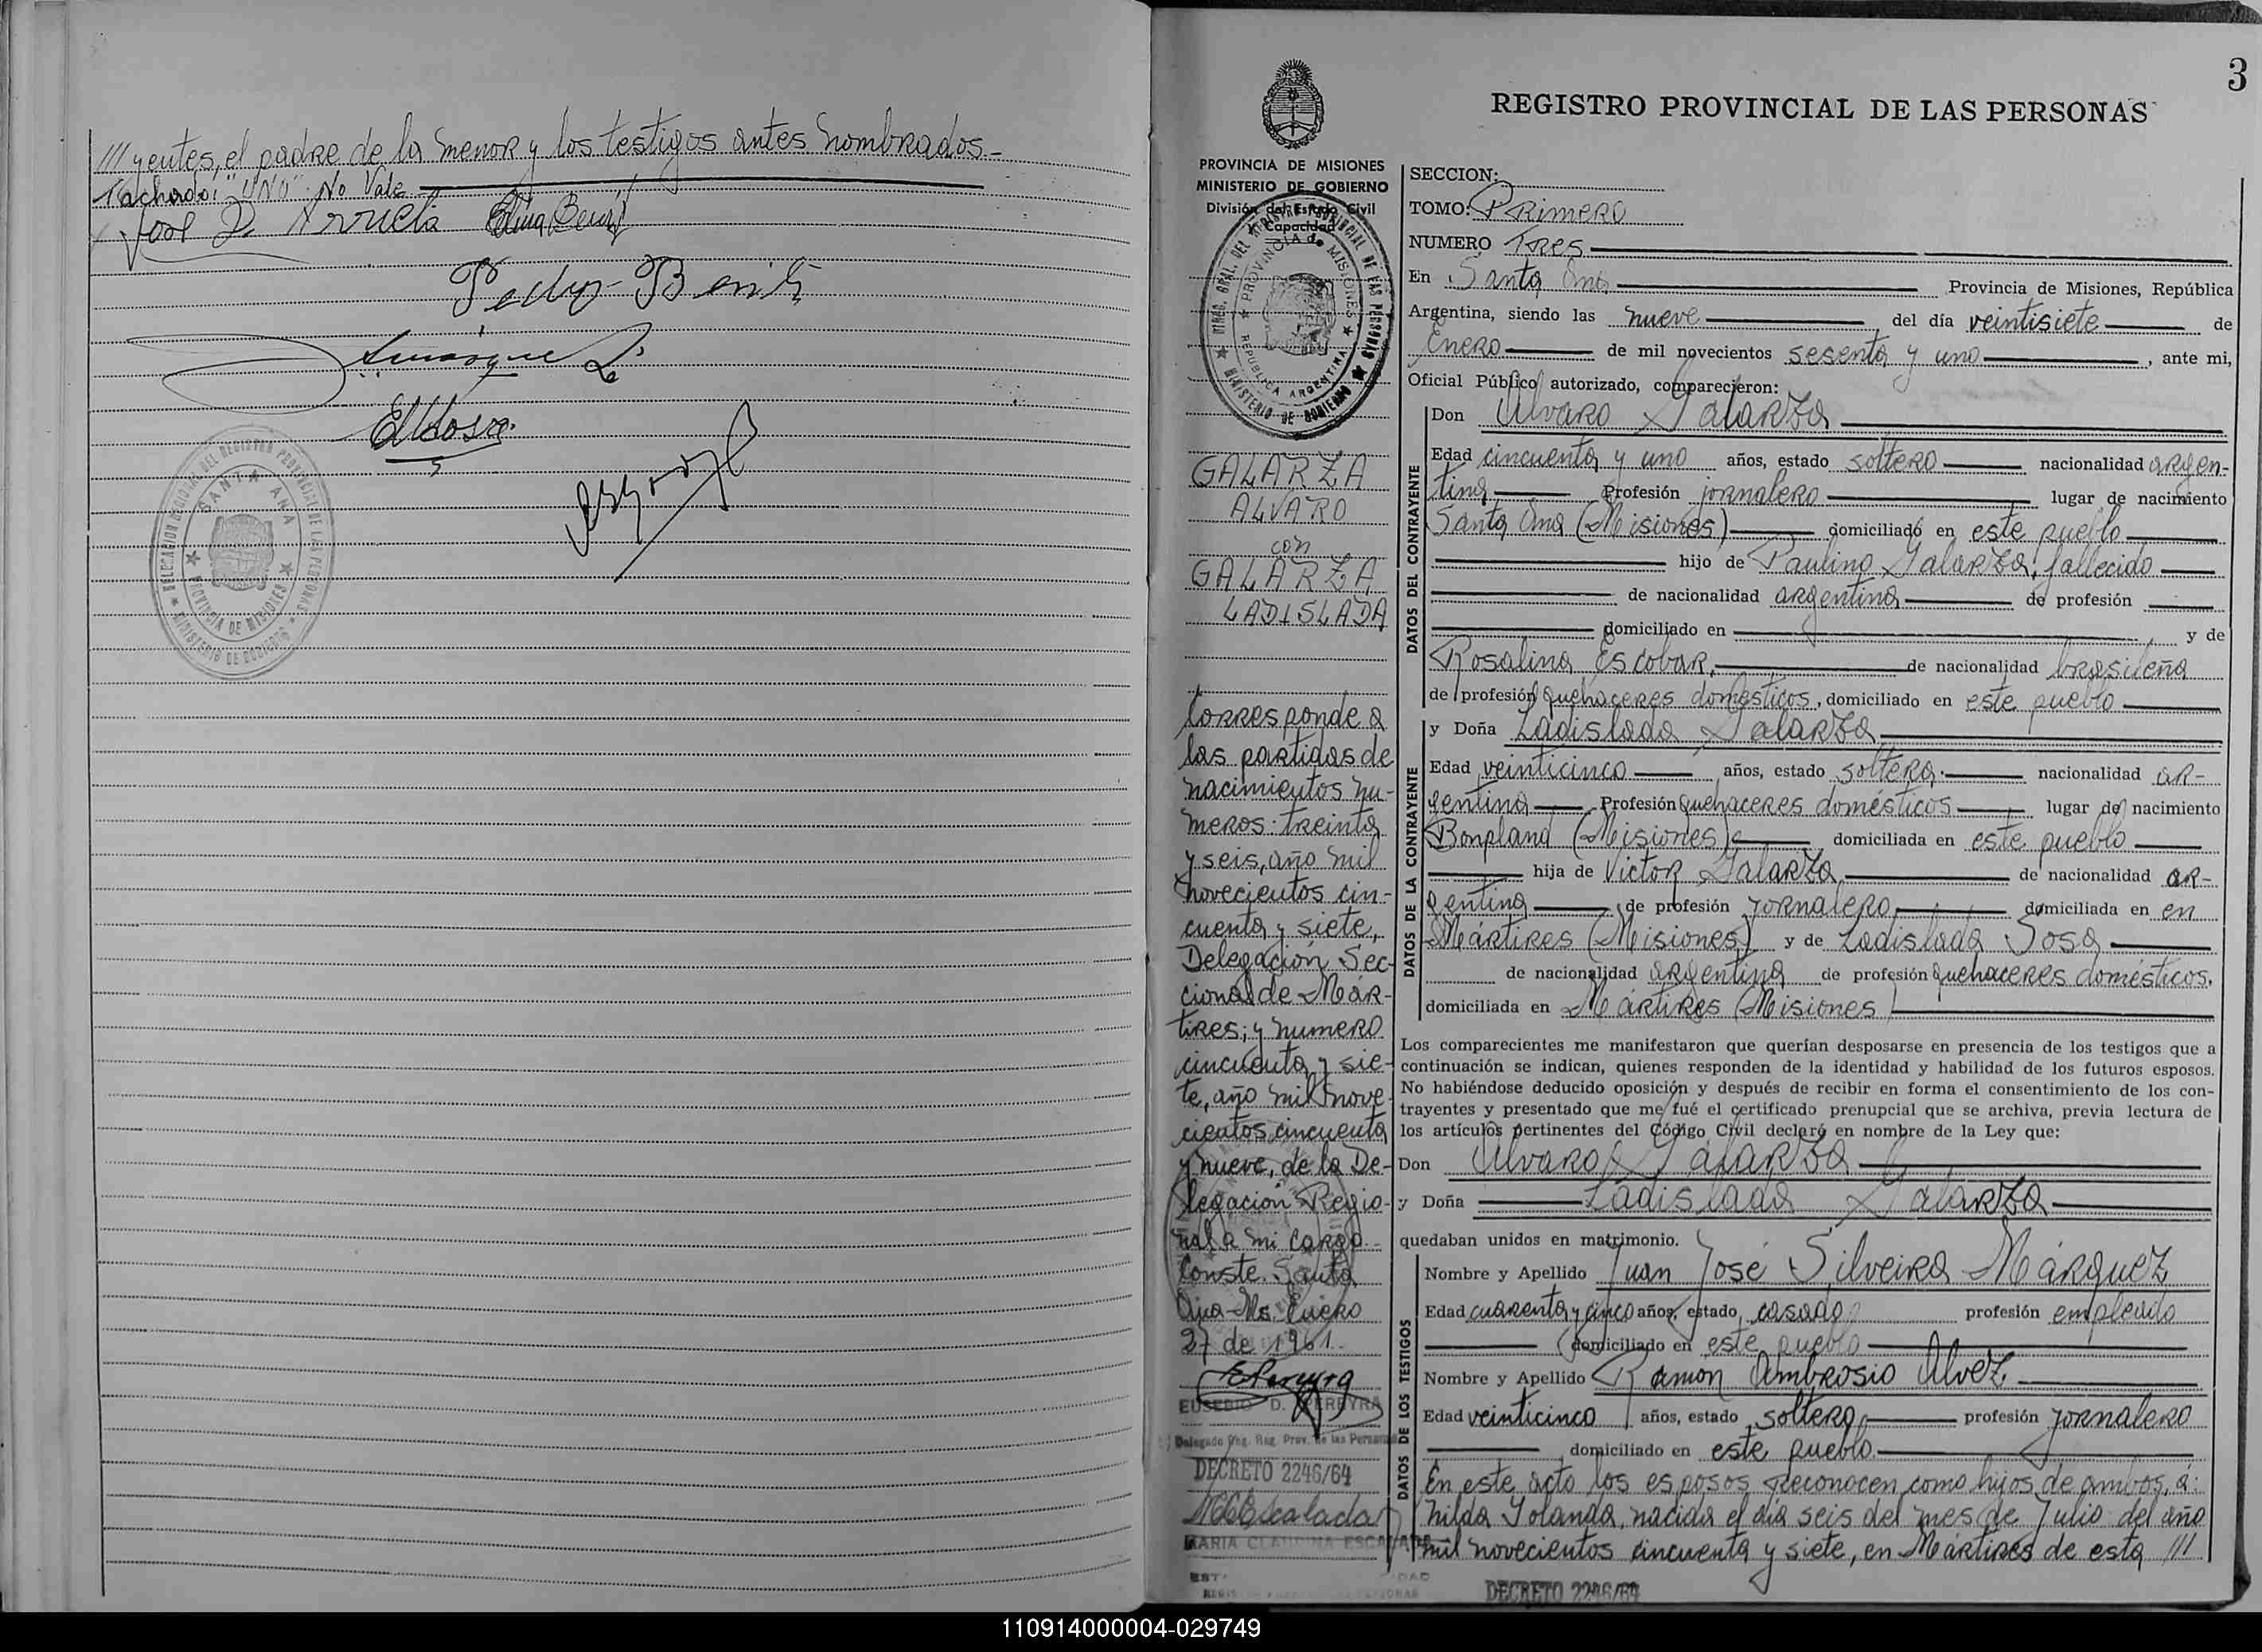 /// yentes, el padre de la menor y los testigos antes nombrados.-
Tachado: "UNO" No Vale
José D. Arrieta
Pedro Benitz
SANTA ANA
PROVINCIA DE MISIONES
MINISTERIO DE GOBIERNO
3
REGISTRO PROVINCIAL DE LAS PERSONAS
PROVINCIA DE MISIONES
MINISTERIO DE GOBIERNO
División del Estado Civil
y Capacidad
DIREC. GRAL. DEL REGISTRO PROVINCIAL DE LAS PERSONAS
MINISTERIO DE GOBIERNO
PROVINCIA de MISIONES
REPUBLICA ARGENTINA
GALARZA
ALVARO
con
GALARZA
LADISLADA
Corresponde a
las partidas de
nacimientos nu-
meros: treinta
y seis, año mil
novecientos cin-
cuenta y siete,
Delegación Sec-
cional de Már-
tires; y numero
cincuenta y sie-
te, año mil nove-
cientos cincuenta
y nueve, de la De-
legación Regio-
nal a mi cargo.
Conste. Santa
Ana-Ms. Enero
27 de 1961.
EUSEBIO D. PEREYRA
Delegado Reg. Prov. de las Personas
DECRETO 2246/64
MARIA CLAUDINA ESCALADA
SECCION:
TOMO: Primero
NUMERO Tres
En Santa Ana Provincia de Misiones, República
Argentina, siendo las nueve del día veintisiete de
Enero de mil novecientos sesenta y uno, ante mi,
Oficial Público autorizado, comparecieron:
DATOS DEL CONTRAYENTE
Don Alvaro Galarza
Edad cincuenta y uno años, estado soltero nacionalidad argen-
tina Profesión jornalero lugar de nacimiento
Santa Ana (Misiones) domiciliado en este pueblo
hijo de Paulino Galarza, fallecido
de nacionalidad argentina de profesión
domiciliado en y de
Rosalina Escobar, de nacionalidad brasileña
de profesión quehaceres domésticos, domiciliado en este pueblo
DATOS DE LA CONTRAYENTE
y Doña Ladislada Galarza
Edad veinticinco años, estado soltera. nacionalidad ar-
gentina Profesión quehaceres domésticos lugar de nacimiento
Bonpland (Misiones) domiciliada en este pueblo
hija de Victor Galarza de nacionalidad ar-
gentina de profesión jornalero, domiciliada en en
Mártires (Misiones) y de Ladislada Sosa
de nacionalidad argentina de profesión quehaceres domésticos,
domiciliada en Mártires (Misiones)
Los comparecientes me manifestaron que querían desposarse en presencia de los testigos que a
continuación se indican, quienes responden de la identidad y habilidad de los futuros esposos.
No habiéndose deducido oposición y después de recibir en forma el consentimiento de los con-
trayentes y presentado que me fué el certificado prenupcial que se archiva, previa lectura de
los artículos pertinentes del Código Civil declaré en nombre de la Ley que:
Don Alvaro Galarza
y Doña Ladislada Galarza
quedaban unidos en matrimonio.
DATOS DE LOS TESTIGOS
Nombre y Apellido Juan José Silveira Márquez
Edad cuarenta y cinco años, estado casado profesión empleado
domiciliado en este pueblo
Nombre y Apellido Ramon Ambrosio Alvez
Edad veinticinco años, estado soltero, profesión jornalero
domiciliado en este pueblo.
En este acto los esposos reconocen como hijos de ambos, a:
Nilda Yolanda, nacida el día seis del mes de Julio del año
mil novecientos cincuenta y siete, en Mártires de esta ///
DECRETO 2246/64
110914000004-029749